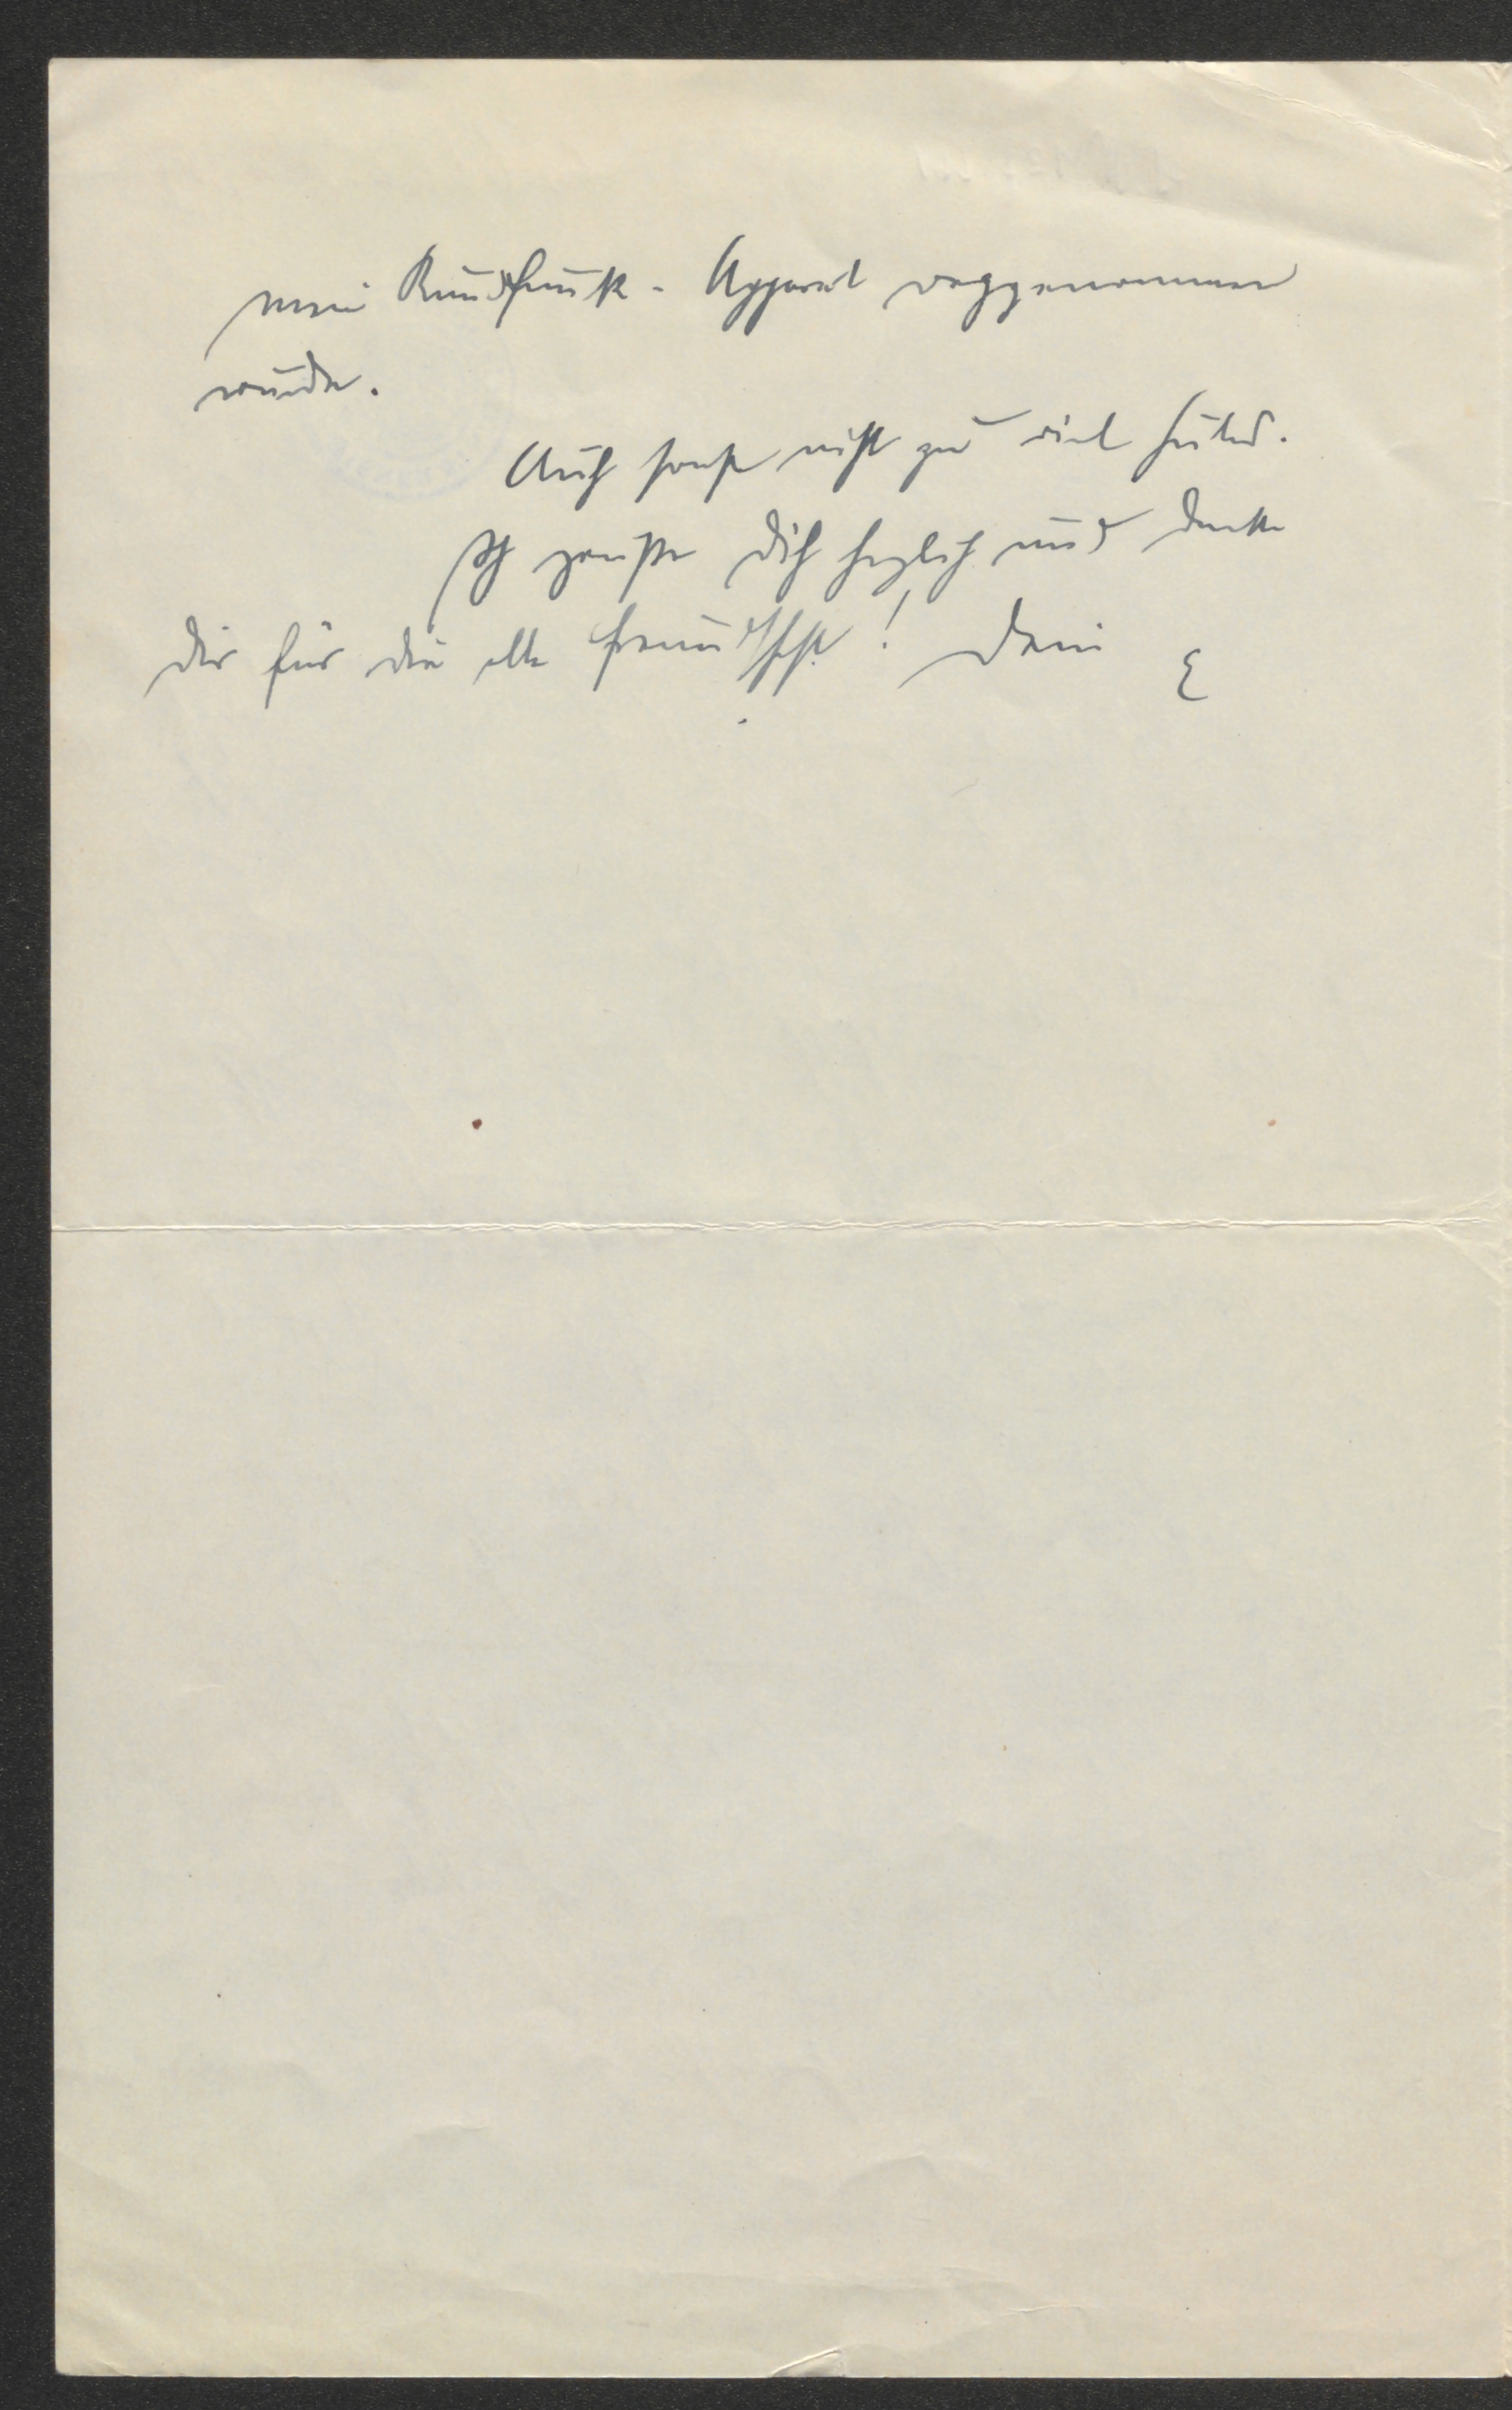 mein Rundfunk-Apparat weggenommen
wurde.
Auch sonst nicht zu viel
Ich grüße Dich herzlich und danke
Dir für die alte Freundschaft! Dein E